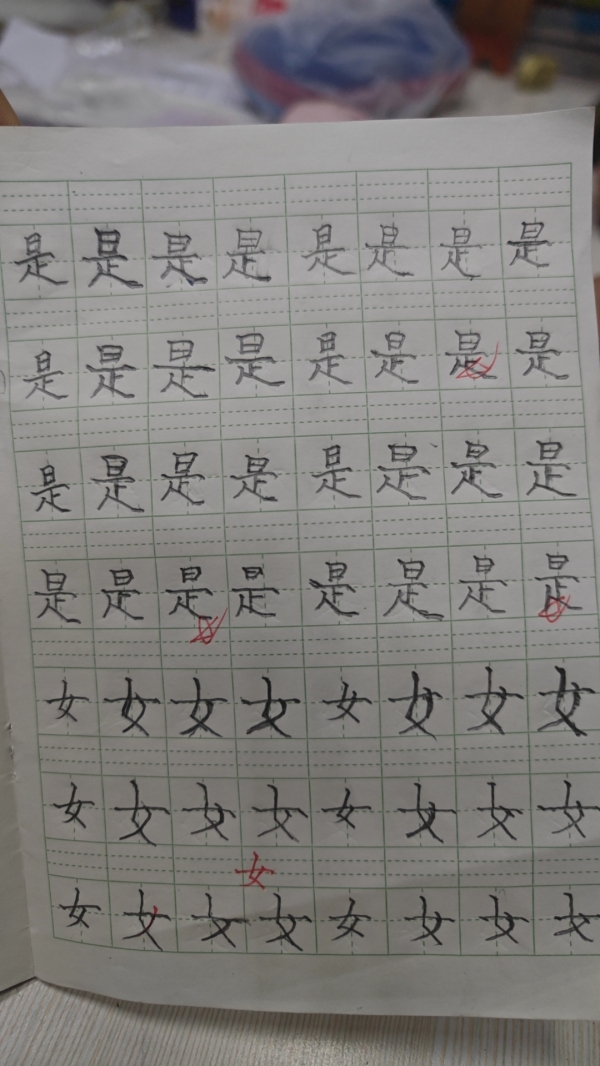 是是是是是是是是
是是是是是是是是
是是是是是是是是
是是是是是是是是
女女女女女女女女
女女女女女女女女
女
女女女女女女女女